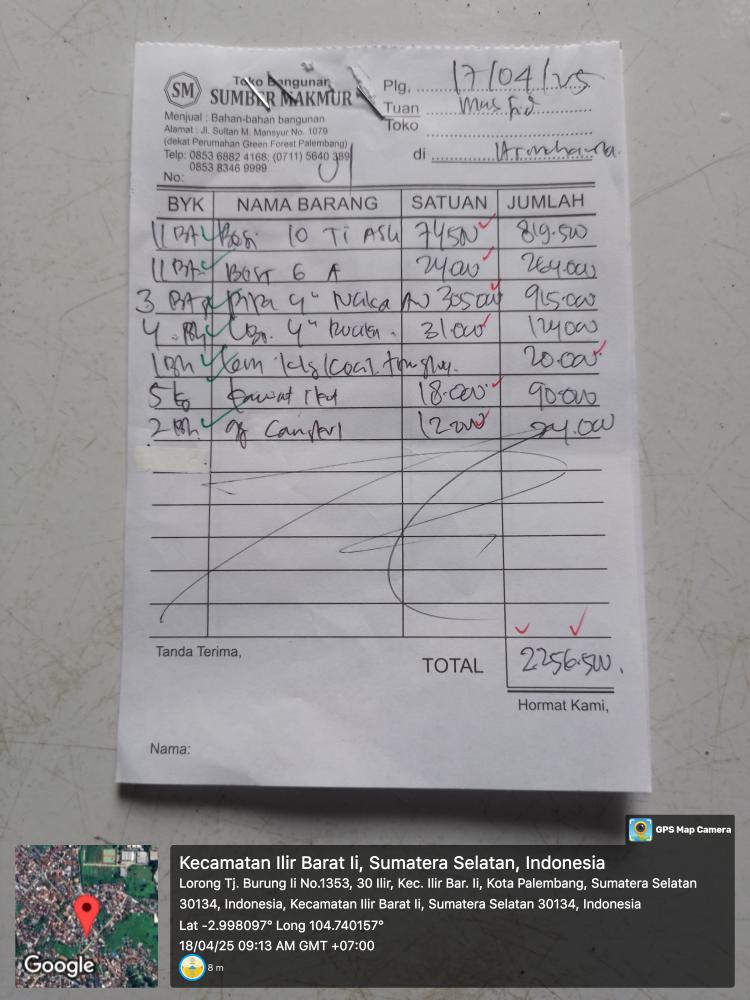 SM
Toko Bangunan
SUMBER MAKMUR
Menjual : Bahan-bahan bangunan
Alamat : Jl. Sultan M. Mansyur No. 1079
(dekat Perumahan Green Forest Palembang)
Telp: 0853 6882 4168; (0711) 5640 389
0853 8346 9999
No:
Plg, 17/04/25
Tuan Masjid
Toko
di
BYK NAMA BARANG SATUAN JUMLAH
11 BA Besi 10 TI ASU 74500 819.500
11 BA Besi 6 A 24000 264.000
3 Pipa 4" AW 305000 915.000
4 Bh 4" 31.000 124.000
1 Bh Lem 20.000
5 kg kawat 18.000 90.000
2 Bh 12.000 24.000
Tanda Terima,
TOTAL 2256.500.
Hormat Kami,
Nama:
GPS Map Camera
Kecamatan Ilir Barat Ii, Sumatera Selatan, Indonesia
Lorong Tj. Burung Ii No.1353, 30 Ilir, Kec. Ilir Bar. Ii, Kota Palembang, Sumatera Selatan
30134, Indonesia, Kecamatan Ilir Barat Ii, Sumatera Selatan 30134, Indonesia
Lat -2.998097° Long 104.740157°
18/04/25 09:13 AM GMT +07:00
8 m
Google